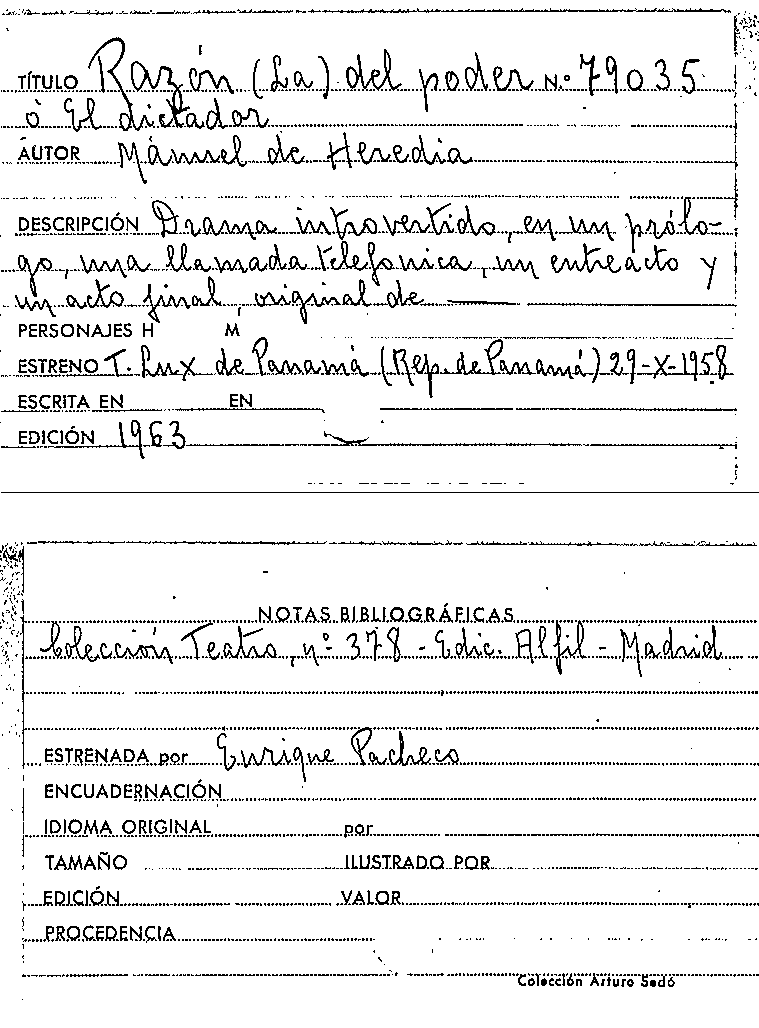 TÍTULO Razón (La) del poder N.º 79035
ó El dictador
AUTOR Mánuel de Heredia
DESCRIPCIÓN Drama introvertido, en un prólo-
go, una llamada telefonica, un entreacto y
un acto final, original de ———
PERSONAJES H M
ESTRENO T. Lux de Panamá (Rep. de Panamá) 29-X-1958
ESCRITA EN EN
EDICIÓN 1963
NOTAS BIBLIOGRÁFICAS
Colección Teatro, nº 378 - Edic. Alfil - Madrid
ESTRENADA por Enrique Pacheco
ENCUADERNACIÓN
IDIOMA ORIGINAL por
TAMAÑO ILUSTRADO POR
EDICIÓN VALOR
PROCEDENCIA
Colección Arturo Sedó